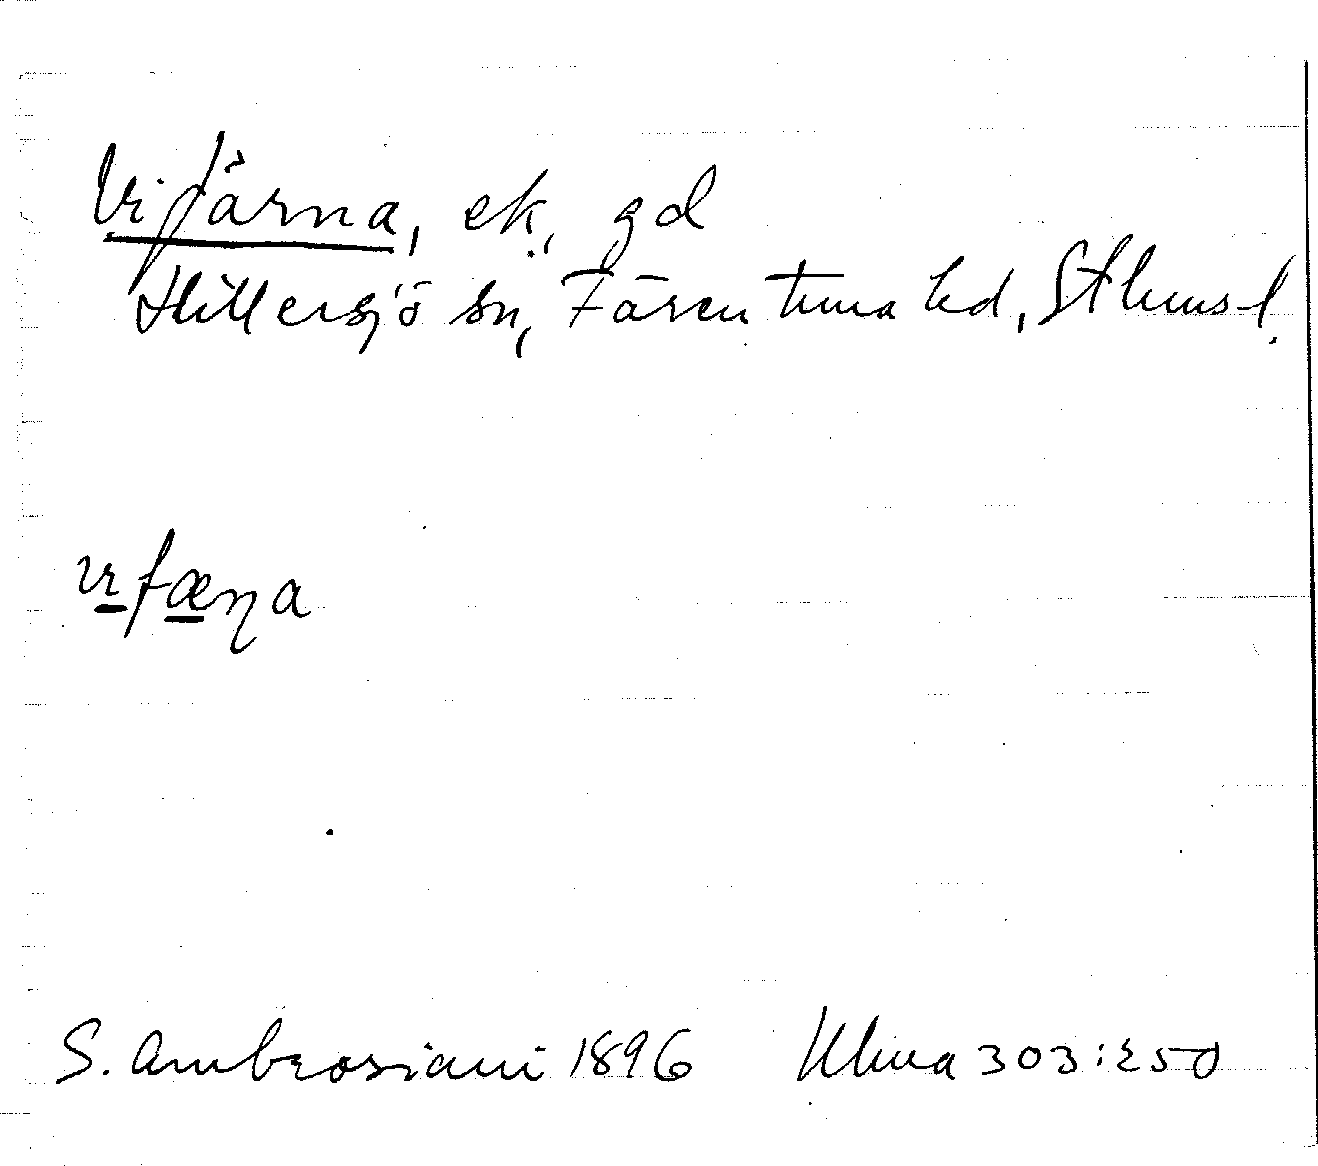 Vifärna, ek., gd
Hillersjö sn, Färentuna hd, Sthms l.
vifæꞃa
S. Ambrosiani 1896 Uluma 303:250